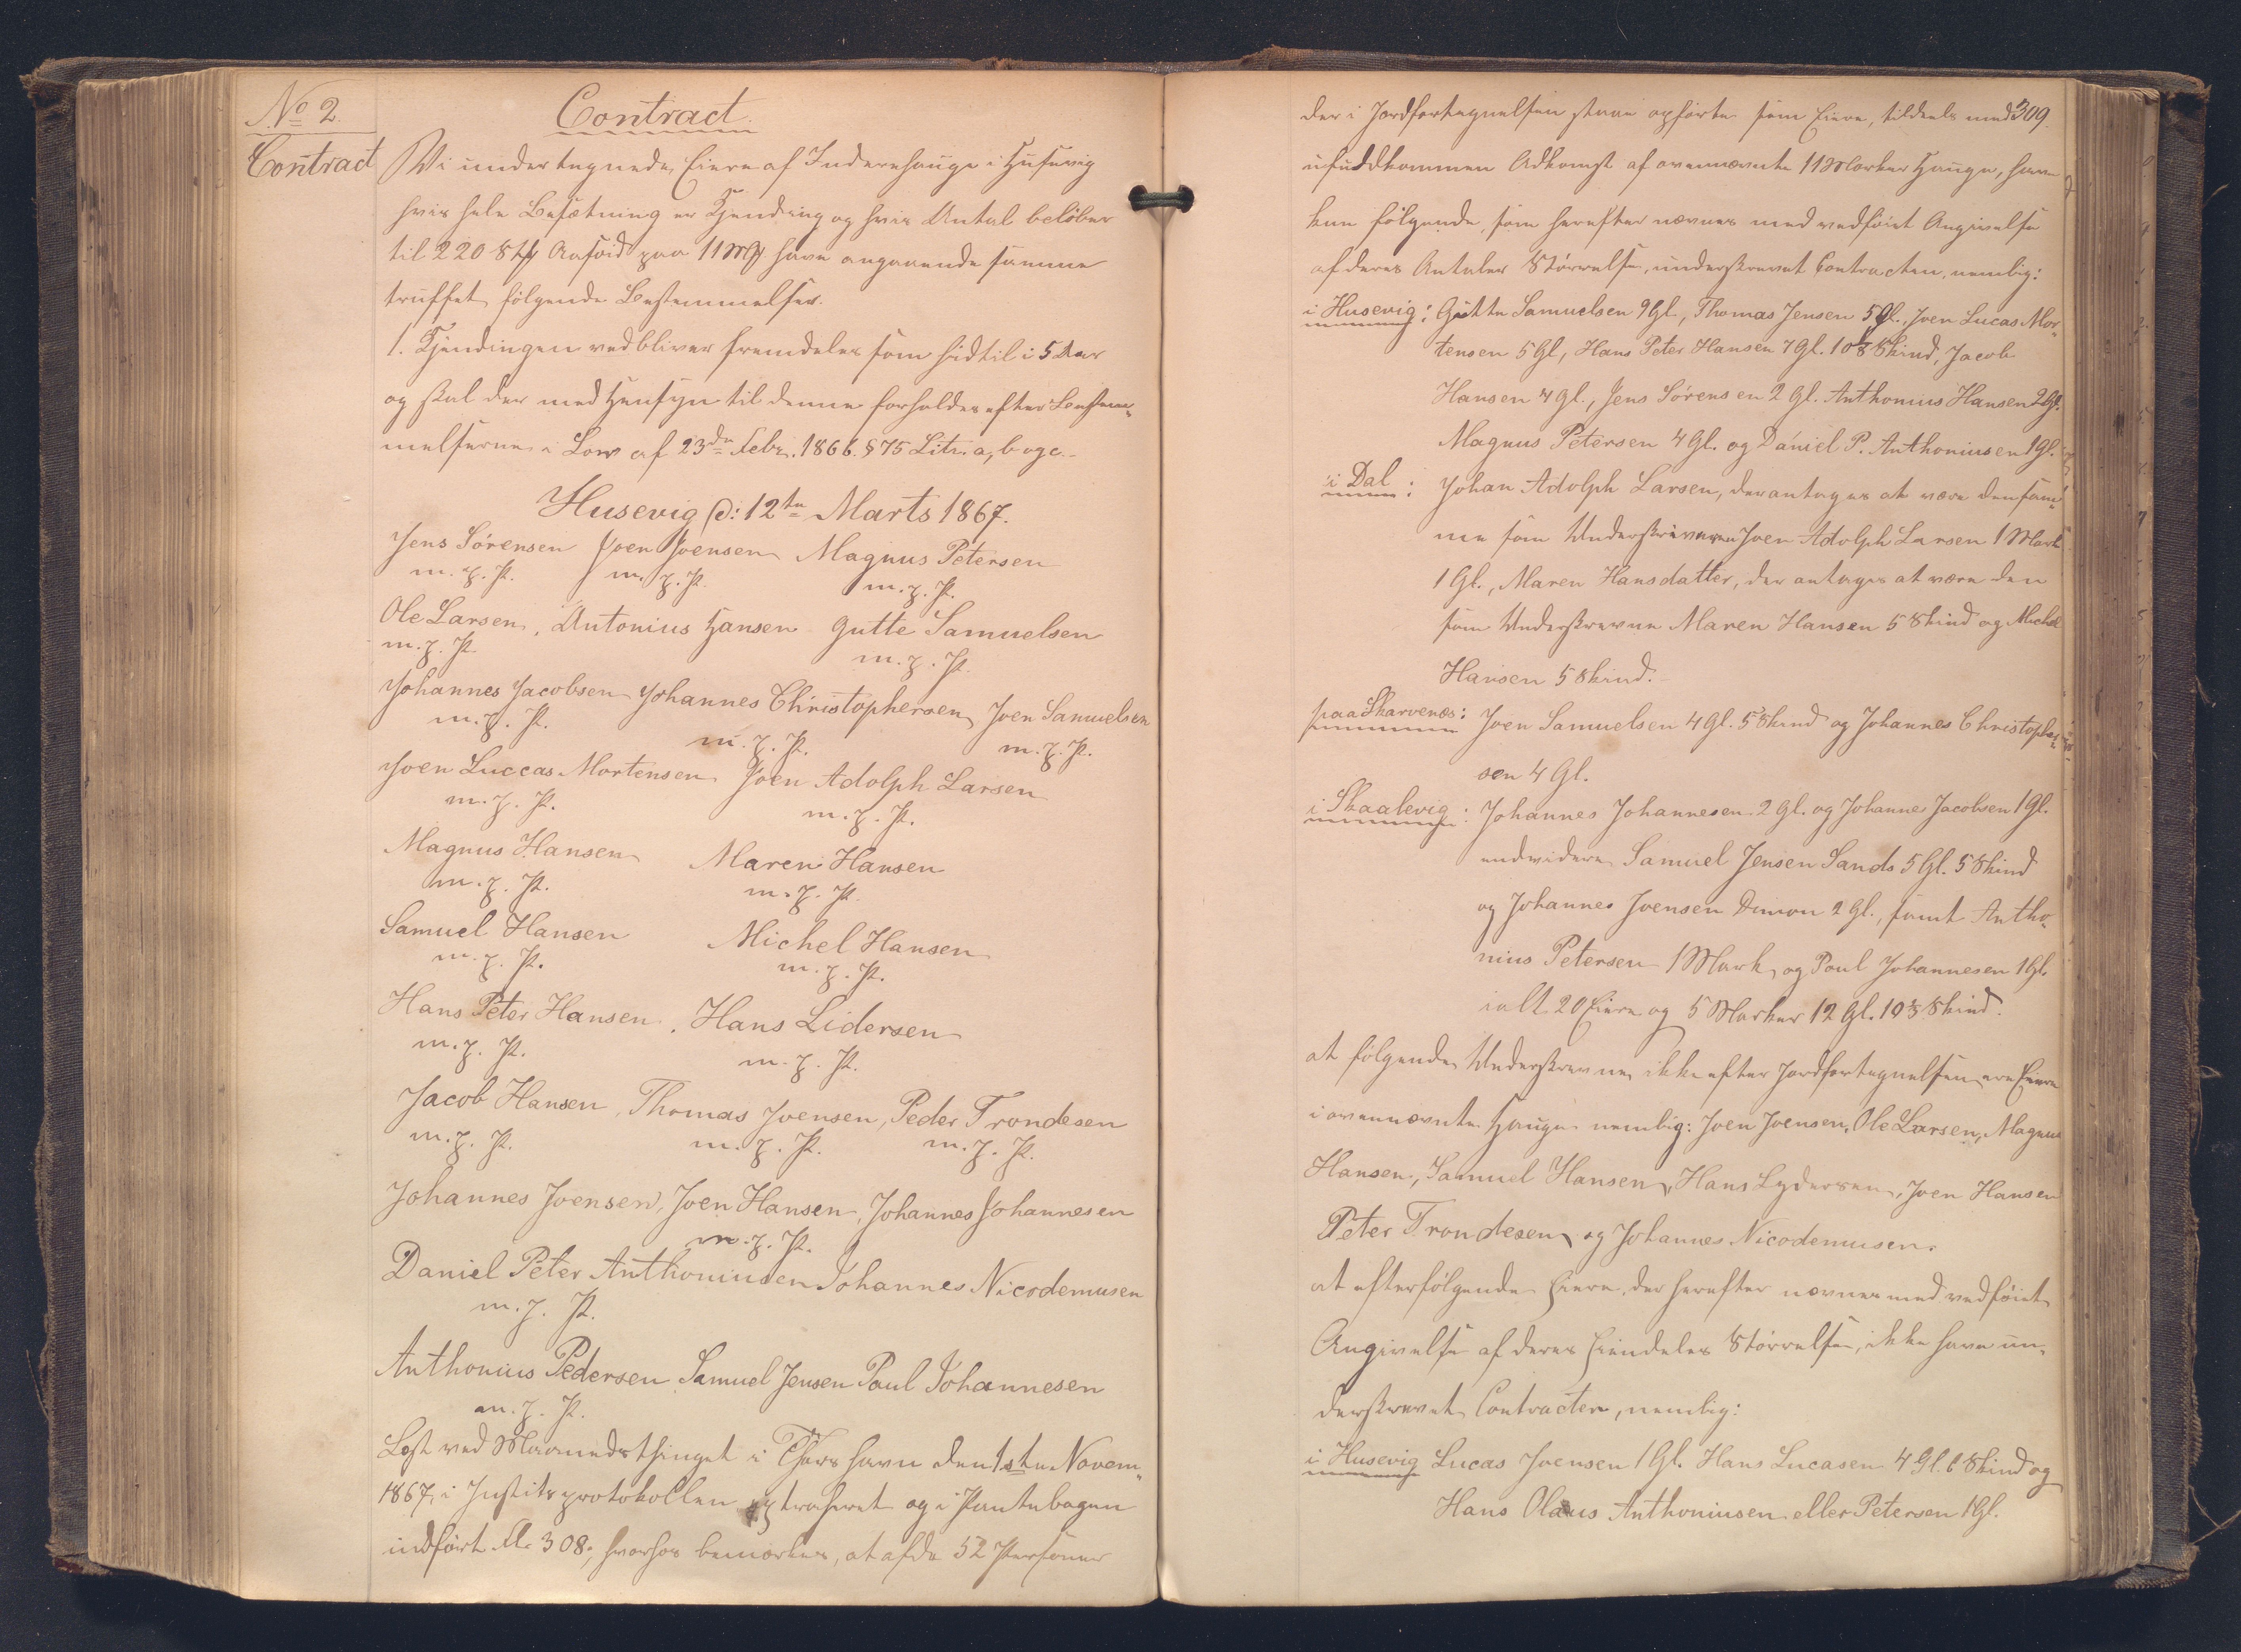 No 2.
Contract
Contract.
Vi undertegnede Eiere af Inderehauge i Husevig
hvis hele Besætning er Kjending og hvis Antal beløber
til 220 Stk Aasoid paa 11 Mk have angaaende samme
truffet følgende Bestemmelser.
1. Kjendingen vedbliver fremdeles som hidtil i 5 Aar
og skal der med Hensyn til denne forholdes efter Bestem¬
melserne i Lov af 23de Febr. 1866. § 75 Litr. a, b og c.
Husevig d: 12te Marts 1867.
Jens Sörensen Joen Joensen Magnus Petersen
m. p. P. m. p. P. m. p. P.
Ole Larsen, Antonius Hansen Gutte Samuelsen
m. p. P. m. p. P.
Johannes Jacobsen Johannes Christophersen Joen Samuelsen
m. p. P. m. p. P. m. p. P.
Joen Luccas Mortensen Joen Adolph Larsen
m. p. P. m. p. P.
Magnus Hansen Maren Hansen
m. p. P. m. p. P.
Samuel Hansen Michel Hansen
m. p. P. m. p. P.
Hans Peter Hansen. Hans Lidersen
m. p. P. m. p. P.
Jacob Hansen, Thomas Joensen, Peder Trondesen
m. p. P. m. p. P. m. p. P.
Johannes Joensen, Joen Hansen, Johannes Johannesen
m. p. P.
Daniel Peter Anthoniusen Johannes Nicodemusen
m. p. P.
Anthonius Pedersen Samuel Jensen Paul Johannesen
m. p. P.
Læst ved Maanedsthinget i Thorshavn den 1ste Novem¬
1867, i Justitsprotokollen extraheret og i Pantebogen
indført Fl. 308. hvorhos bemærkes, at af de 52 Personer
der i Jordfortegnelsen staae opførte som Eiere, tildeels med 309.
ufuldkommen Adkomst af ovennævnte 11 Marker Hauge, have
kun følgende, som herefter nævnes med vedføiet Angivelse
af deres Antales Størrelse, underskrevet Contracten, nemlig:
i Husevig: Gutte Samuelsen 9 Gl., Thomas Jensen 5 Gl., Joen Lucas Mor¬
tensen 5 Gl, Hans Peter Hansen 7 Gl. 10⅔ Skind, Jacob
Hansen 4 Gl., Jens Sörensen 2 Gl. Anthonius Hansen 2 Gl.
Magnus Petersen 4 Gl. og Daniel P. Anthoniusen 1 Gl.
i Dal: Johan Adolph Larsen, der antages at være densam¬
me som Underskriveren Joen Adolph Larsen 1 Mark
1 Gl., Maren Hansdatter, der antages at være den
som Underskrevne Maren Hansen 5 Skind og Michel
Hansen 5 Skind.
paa Skarvenæs: Joen Samuelsen 4 Gl. 5 Skind og Johannes Christopher¬
sen 4 Gl.
i Skaalevig: Johannes Johannesen 2 Gl. og Johannes Jacobsen 1 Gl.
endvidere Samuel Jensen Sands 5 Gl. 5 Skind
og Johannes Joensen Dimon 2 Gl., samt Antho¬
nius Petersen 1 Mark og Poul Johannesen 1 Gl.
ialt 20 Eiere og 5 Marker 12 Gl. 10⅔ Skind.
at følgende Underskrevne ikke efter Jordfortegnelsen ere Eiere
i ovennævnte Hauge nemlig: Joen Joensen, Ole Larsen, Magnus
Hansen, Samuel Hansen, Hans Lydersen, Joen Hansen
Peter Trondesen og Johannes Nicodemusen.
at efterfølgende Eiere, der herefter nævnes med vedføiet
Angivelse af deres Eiendeles Størrelse, ikke have un¬
derskrevet Contracten, nemlig:
i Husevig Lucas Joensen 1 Gl. Hans Lucasen 4 Gl. 6 Skind og
Hans Olaus Anthoniusen eller Petersen 1 Gl.